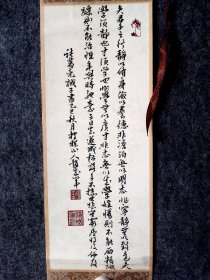 夫君子之行静以修身儉以養德非澹泊無以明志非寧静無以致遠夫
學須静也才須學也非學無以廣才非志無以成學慢則不能勵精險
躁則不能治性年與時馳意與日去遂成枯落多不接世悲守窮廬將復何及
諸葛亮誡子書 秋月 山人